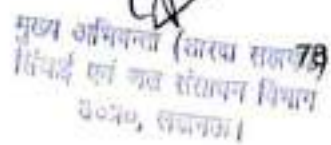 मुख्य अभियन्ता (शारदा सहा०) 78
सिंचाई एवं जल संसाधन विभाग
उ०प्र०, लखनऊ।